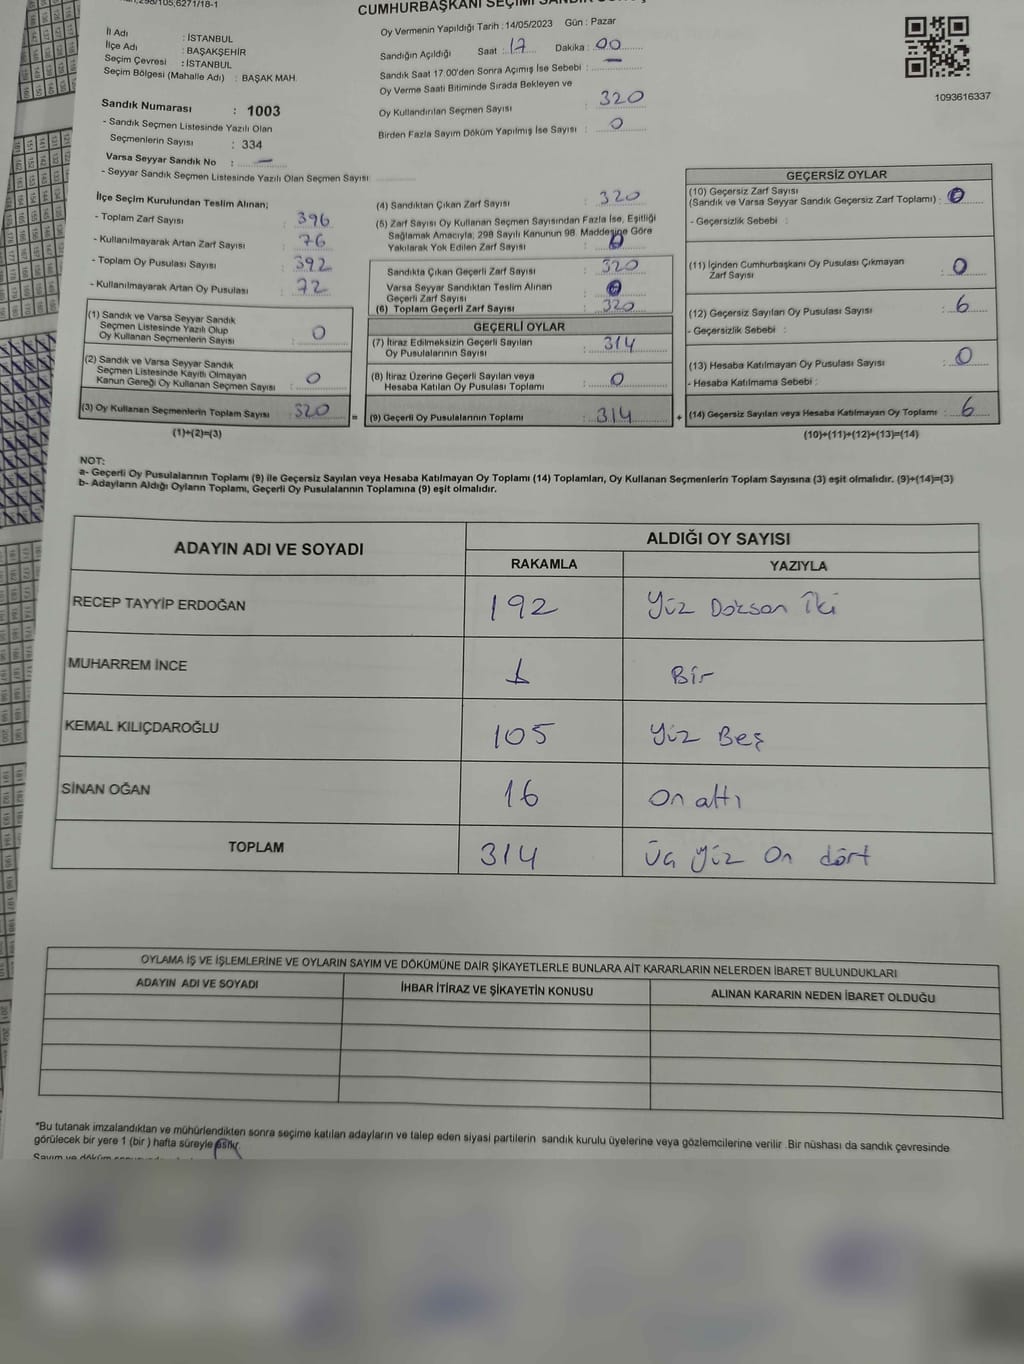 298/105,6271/18-1
CUMHURBAŞKANI SEÇİMİ
İl Adı : İSTANBUL
İlçe Adı : BAŞAKŞEHİR
Seçim Çevresi : İSTANBUL
Seçim Bölgesi (Mahalle Adı) : BAŞAK MAH.
Sandık Numarası : 1003
- Sandık Seçmen Listesinde Yazılı Olan
Seçmenlerin Sayısı : 334
Varsa Seyyar Sandık No : —
- Seyyar Sandık Seçmen Listesinde Yazılı Olan Seçmen Sayısı
Oy Vermenin Yapıldığı Tarih : 14/05/2023 Gün : Pazar
Sandığın Açıldığı Saat : 17 Dakika : 00
Sandık Saat 17.00'den Sonra Açımış İse Sebebi : —
Oy Verme Saati Bitiminde Sırada Bekleyen ve
Oy Kullandırılan Seçmen Sayısı : 320
Birden Fazla Sayım Döküm Yapılmış İse Sayısı : 0
1093616337
İlçe Seçim Kurulundan Teslim Alınan;
- Toplam Zarf Sayısı : 396
- Kullanılmayarak Artan Zarf Sayısı : 76
- Toplam Oy Pusulası Sayısı : 392
- Kullanılmayarak Artan Oy Pusulası : 72
(1) Sandık ve Varsa Seyyar Sandık
Seçmen Listesinde Yazılı Olup
Oy Kullanan Seçmenlerin Sayısı : 0
(2) Sandık ve Varsa Seyyar Sandık
Seçmen Listesinde Kayıtlı Olmayan
Kanun Gereği Oy Kullanan Seçmen Sayısı : 0
(3) Oy Kullanan Seçmenlerin Toplam Sayısı : 320
(1)+(2)=(3)
(4) Sandıktan Çıkan Zarf Sayısı : 320
(5) Zarf Sayısı Oy Kullanan Seçmen Sayısından Fazla İse, Eşitliği
Sağlamak Amacıyla; 298 Sayılı Kanunun 98. Maddesine Göre
Yakılarak Yok Edilen Zarf Sayısı : 0
Sandıkta Çıkan Geçerli Zarf Sayısı : 320
Varsa Seyyar Sandıktan Teslim Alınan
Geçerli Zarf Sayısı : 0
(6) Toplam Geçerli Zarf Sayısı : 320
GEÇERLİ OYLAR
(7) İtiraz Edilmeksizin Geçerli Sayılan
Oy Pusulalarının Sayısı : 314
(8) İtiraz Üzerine Geçerli Sayılan veya
Hesaba Katılan Oy Pusulası Toplamı : 0
= (9) Geçerli Oy Pusulalarının Toplamı : 314 +
GEÇERSİZ OYLAR
(10) Geçersiz Zarf Sayısı
(Sandık ve Varsa Seyyar Sandık Geçersiz Zarf Toplamı) : 0
- Geçersizlik Sebebi :
(11) İçinden Cumhurbaşkanı Oy Pusulası Çıkmayan
Zarf Sayısı : 0
(12) Geçersiz Sayılan Oy Pusulası Sayısı : 6
- Geçersizlik Sebebi :
(13) Hesaba Katılmayan Oy Pusulası Sayısı : 0
- Hesaba Katılmama Sebebi :
(14) Geçersiz Sayılan veya Hesaba Katılmayan Oy Toplamı : 6
(10)+(11)+(12)+(13)=(14)
NOT:
a- Geçerli Oy Pusulalarının Toplamı (9) ile Geçersiz Sayılan veya Hesaba Katılmayan Oy Toplamı (14) Toplamları, Oy Kullanan Seçmenlerin Toplam Sayısına (3) eşit olmalıdır. (9)+(14)=(3)
b- Adayların Aldığı Oyların Toplamı, Geçerli Oy Pusulalarının Toplamına (9) eşit olmalıdır.
ADAYIN ADI VE SOYADI ALDIĞI OY SAYISI
RAKAMLA YAZIYLA
RECEP TAYYİP ERDOĞAN 192 Yüz Doksan İki
MUHARREM İNCE 1 Bir
KEMAL KILIÇDAROĞLU 105 Yüz Beş
SİNAN OĞAN 16 On altı
TOPLAM 314 Üç Yüz On dört
OYLAMA İŞ VE İŞLEMLERİNE VE OYLARIN SAYIM VE DÖKÜMÜNE DAİR ŞİKAYETLERLE BUNLARA AİT KARARLARIN NELERDEN İBARET BULUNDUKLARI
ADAYIN ADI VE SOYADI İHBAR İTİRAZ VE ŞİKAYETİN KONUSU ALINAN KARARIN NEDEN İBARET OLDUĞU
*Bu tutanak imzalandıktan ve mühürlendikten sonra seçime katılan adayların ve talep eden siyasi partilerin sandık kurulu üyelerine veya gözlemcilerine verilir .Bir nüshası da sandık çevresinde
görülecek bir yere 1 (bir ) hafta süreyle asılır.
Sayım ve döküm